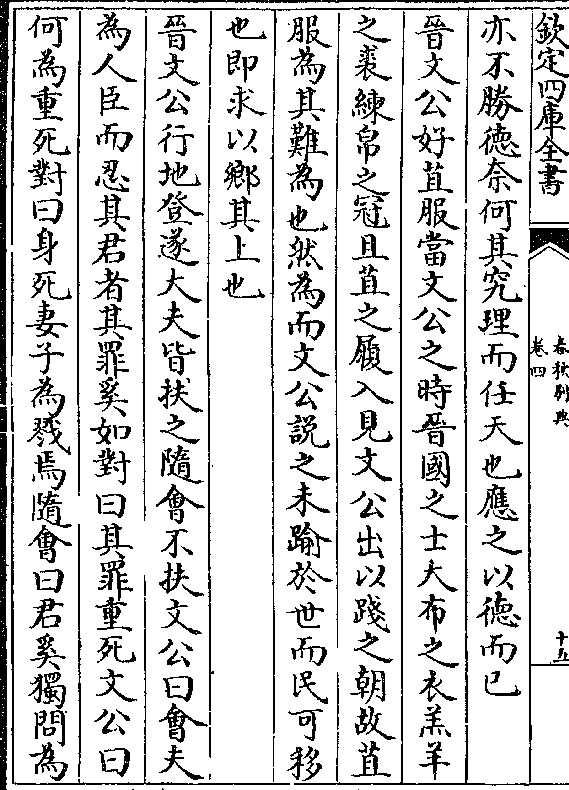 欽定四庫全書
春秋別典
卷四
十五
亦不勝徳奈何其究理而任天也應之以徳而已
晉文公好苴服當文公之時晉國之士大布之衣羔羊
之裘練帛之冠且苴之屨入見文公出以踐之朝故苴
服為其難為也然為而文公説之未踰於世而民可移
也即求以鄉其上也
晉文公行地登遂大夫皆扶之隨㑹不扶文公曰㑹夫
為人臣而忍其君者其罪奚如對曰其罪重死文公曰
何為重死對曰身死妻子為戮焉隨㑹曰君奚獨問為